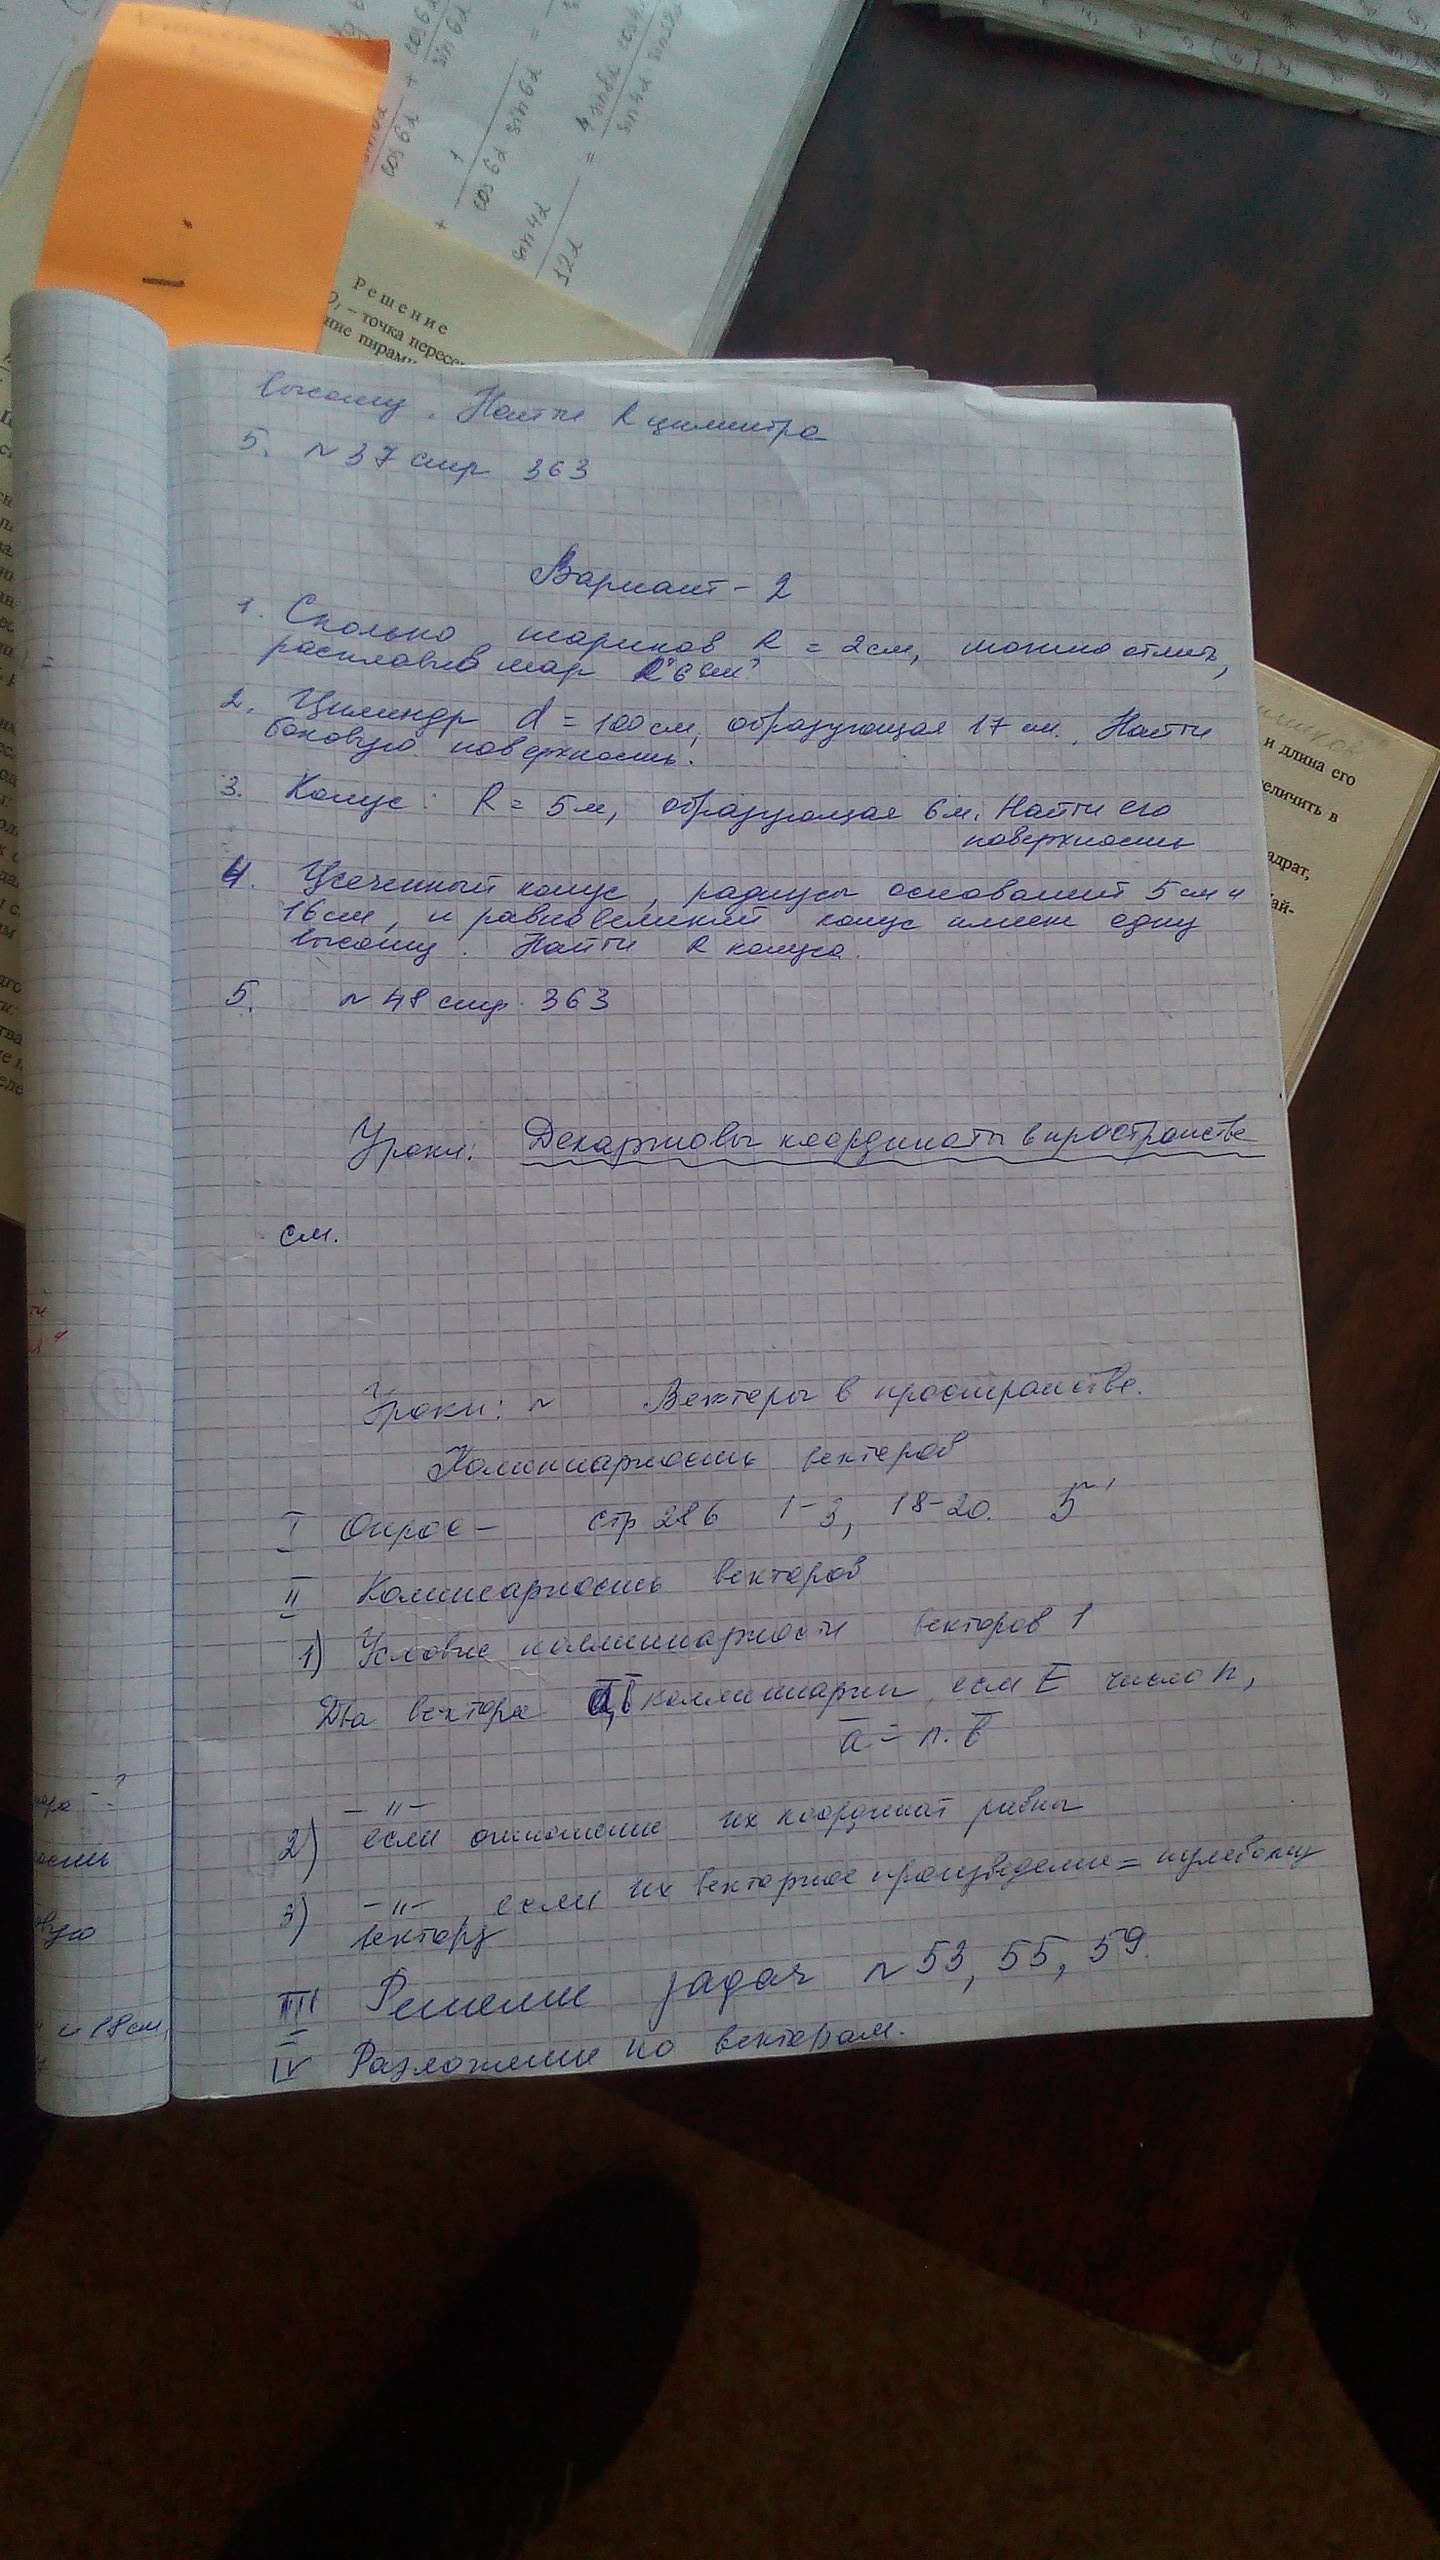 cos 6α
sin 6α
+
cos 6α
+
1
cos 6α sin 6α
=
sin 4α
32α
=
4 sin 8α cos 4
sin 4α sin 12α
Решение
– точка пересе
ние пирами
высоту. Найти R цилиндра
5. №37 стр 363
Вариант - 2
1. Сколько шариков R = 2см, можно отлить,
расплавив шар R=6см?
2. Цилиндр d = 100см, образующая 17 см. Найти
боковую поверхность.
3. Конус: R = 5м, образующая 6м. Найти его
поверхность
4. Усеченный конус, радиусы оснований 5см и
16см, и равновеликий конус имеют одну
высоту. Найти R конуса.
5. №48 стр. 363
Уроки: Декартовы координаты в пространстве
см.
Уроки: № Векторы в пространстве.
Коллинеарность векторов
I Опрос – стр 286 1-3, 18-20. 5
II Коллинеарность векторов
1) Условие коллинеарности векторов 1
Два вектора a, b коллинеарны, если E число n,
a = n. b
2) –"– если отношение их координат равны
3) –"–, если их векторное произведение = нулевому
вектору
III Решение задач №53, 55, 59.
IV Разложение по векторам.
и длина его
еличить в
адрат,
и 18см,